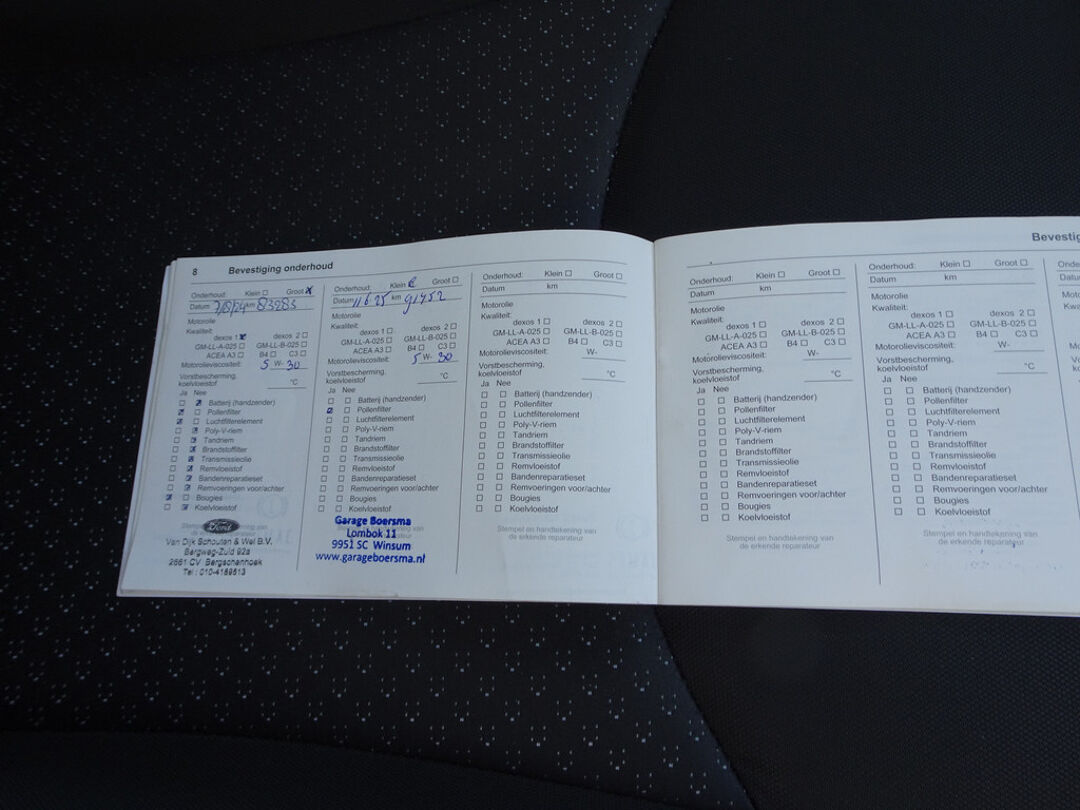 8 Bevestiging onderhoud
Onderhoud: Klein ☐ Groot ☒
Datum 7/8/24 km 83283
Motorolie
Kwaliteit:
dexos 1 ☒ dexos 2 ☐
GM-LL-A-025 ☐ GM-LL-B-025 ☐
ACEA A3 ☐ B4 ☐ C3 ☐
Motorolieviscositeit: 5 W- 30
Vorstbescherming,
koelvloeistof °C
Ja Nee
☐ ☒ Batterij (handzender)
☒ ☐ Pollenfilter
☒ ☐ Luchtfilterelement
☐ ☒ Poly-V-riem
☐ ☒ Tandriem
☐ ☒ Brandstoffilter
☐ ☒ Transmissieolie
☐ ☒ Remvloeistof
☐ ☒ Bandenreparatieset
☐ ☒ Remvoeringen voor/achter
☒ ☐ Bougies
☐ ☒ Koelvloeistof
Ford
Van Dijk Schouten & Wel B.V.
Bergweg-Zuid 92a
2661 CV Bergschenhoek
Tel : 010-4189513
Onderhoud: Klein ☒ Groot ☐
Datum 11 6 25 km 91452
Motorolie
Kwaliteit:
dexos 1 ☐ dexos 2 ☐
GM-LL-A-025 ☐ GM-LL-B-025 ☐
ACEA A3 ☐ B4 ☐ C3 ☐
Motorolieviscositeit: 5 W- 30
Vorstbescherming,
koelvloeistof °C
Ja Nee
☐ ☐ Batterij (handzender)
☒ ☐ Pollenfilter
☐ ☐ Luchtfilterelement
☐ ☐ Poly-V-riem
☐ ☐ Tandriem
☐ ☐ Brandstoffilter
☐ ☐ Transmissieolie
☐ ☐ Remvloeistof
☐ ☐ Bandenreparatieset
☐ ☐ Remvoeringen voor/achter
☐ ☐ Bougies
☐ ☐ Koelvloeistof
Garage Boersma
Lombok 11
9951 SC Winsum
www.garageboersma.nl
Onderhoud: Klein ☐ Groot ☐
Datum km
Motorolie
Kwaliteit:
dexos 1 ☐ dexos 2 ☐
GM-LL-A-025 ☐ GM-LL-B-025 ☐
ACEA A3 ☐ B4 ☐ C3 ☐
Motorolieviscositeit: W-
Vorstbescherming,
koelvloeistof °C
Ja Nee
☐ ☐ Batterij (handzender)
☐ ☐ Pollenfilter
☐ ☐ Luchtfilterelement
☐ ☐ Poly-V-riem
☐ ☐ Tandriem
☐ ☐ Brandstoffilter
☐ ☐ Transmissieolie
☐ ☐ Remvloeistof
☐ ☐ Bandenreparatieset
☐ ☐ Remvoeringen voor/achter
☐ ☐ Bougies
☐ ☐ Koelvloeistof
Stempel en handtekening van
de erkende reparateur
Bevestig
Onderhoud: Klein ☐ Groot ☐
Datum km
Motorolie
Kwaliteit:
dexos 1 ☐ dexos 2 ☐
GM-LL-A-025 ☐ GM-LL-B-025 ☐
ACEA A3 ☐ B4 ☐ C3 ☐
Motorolieviscositeit: W-
Vorstbescherming,
koelvloeistof °C
Ja Nee
☐ ☐ Batterij (handzender)
☐ ☐ Pollenfilter
☐ ☐ Luchtfilterelement
☐ ☐ Poly-V-riem
☐ ☐ Tandriem
☐ ☐ Brandstoffilter
☐ ☐ Transmissieolie
☐ ☐ Remvloeistof
☐ ☐ Bandenreparatieset
☐ ☐ Remvoeringen voor/achter
☐ ☐ Bougies
☐ ☐ Koelvloeistof
Stempel en handtekening van
de erkende reparateur
Onderhoud: Klein ☐ Groot ☐
Datum km
Motorolie
Kwaliteit:
dexos 1 ☐ dexos 2 ☐
GM-LL-A-025 ☐ GM-LL-B-025 ☐
ACEA A3 ☐ B4 ☐ C3 ☐
Motorolieviscositeit: W-
Vorstbescherming,
koelvloeistof °C
Ja Nee
☐ ☐ Batterij (handzender)
☐ ☐ Pollenfilter
☐ ☐ Luchtfilterelement
☐ ☐ Poly-V-riem
☐ ☐ Tandriem
☐ ☐ Brandstoffilter
☐ ☐ Transmissieolie
☐ ☐ Remvloeistof
☐ ☐ Bandenreparatieset
☐ ☐ Remvoeringen voor/achter
☐ ☐ Bougies
☐ ☐ Koelvloeistof
Stempel en handtekening van
de erkende reparateur